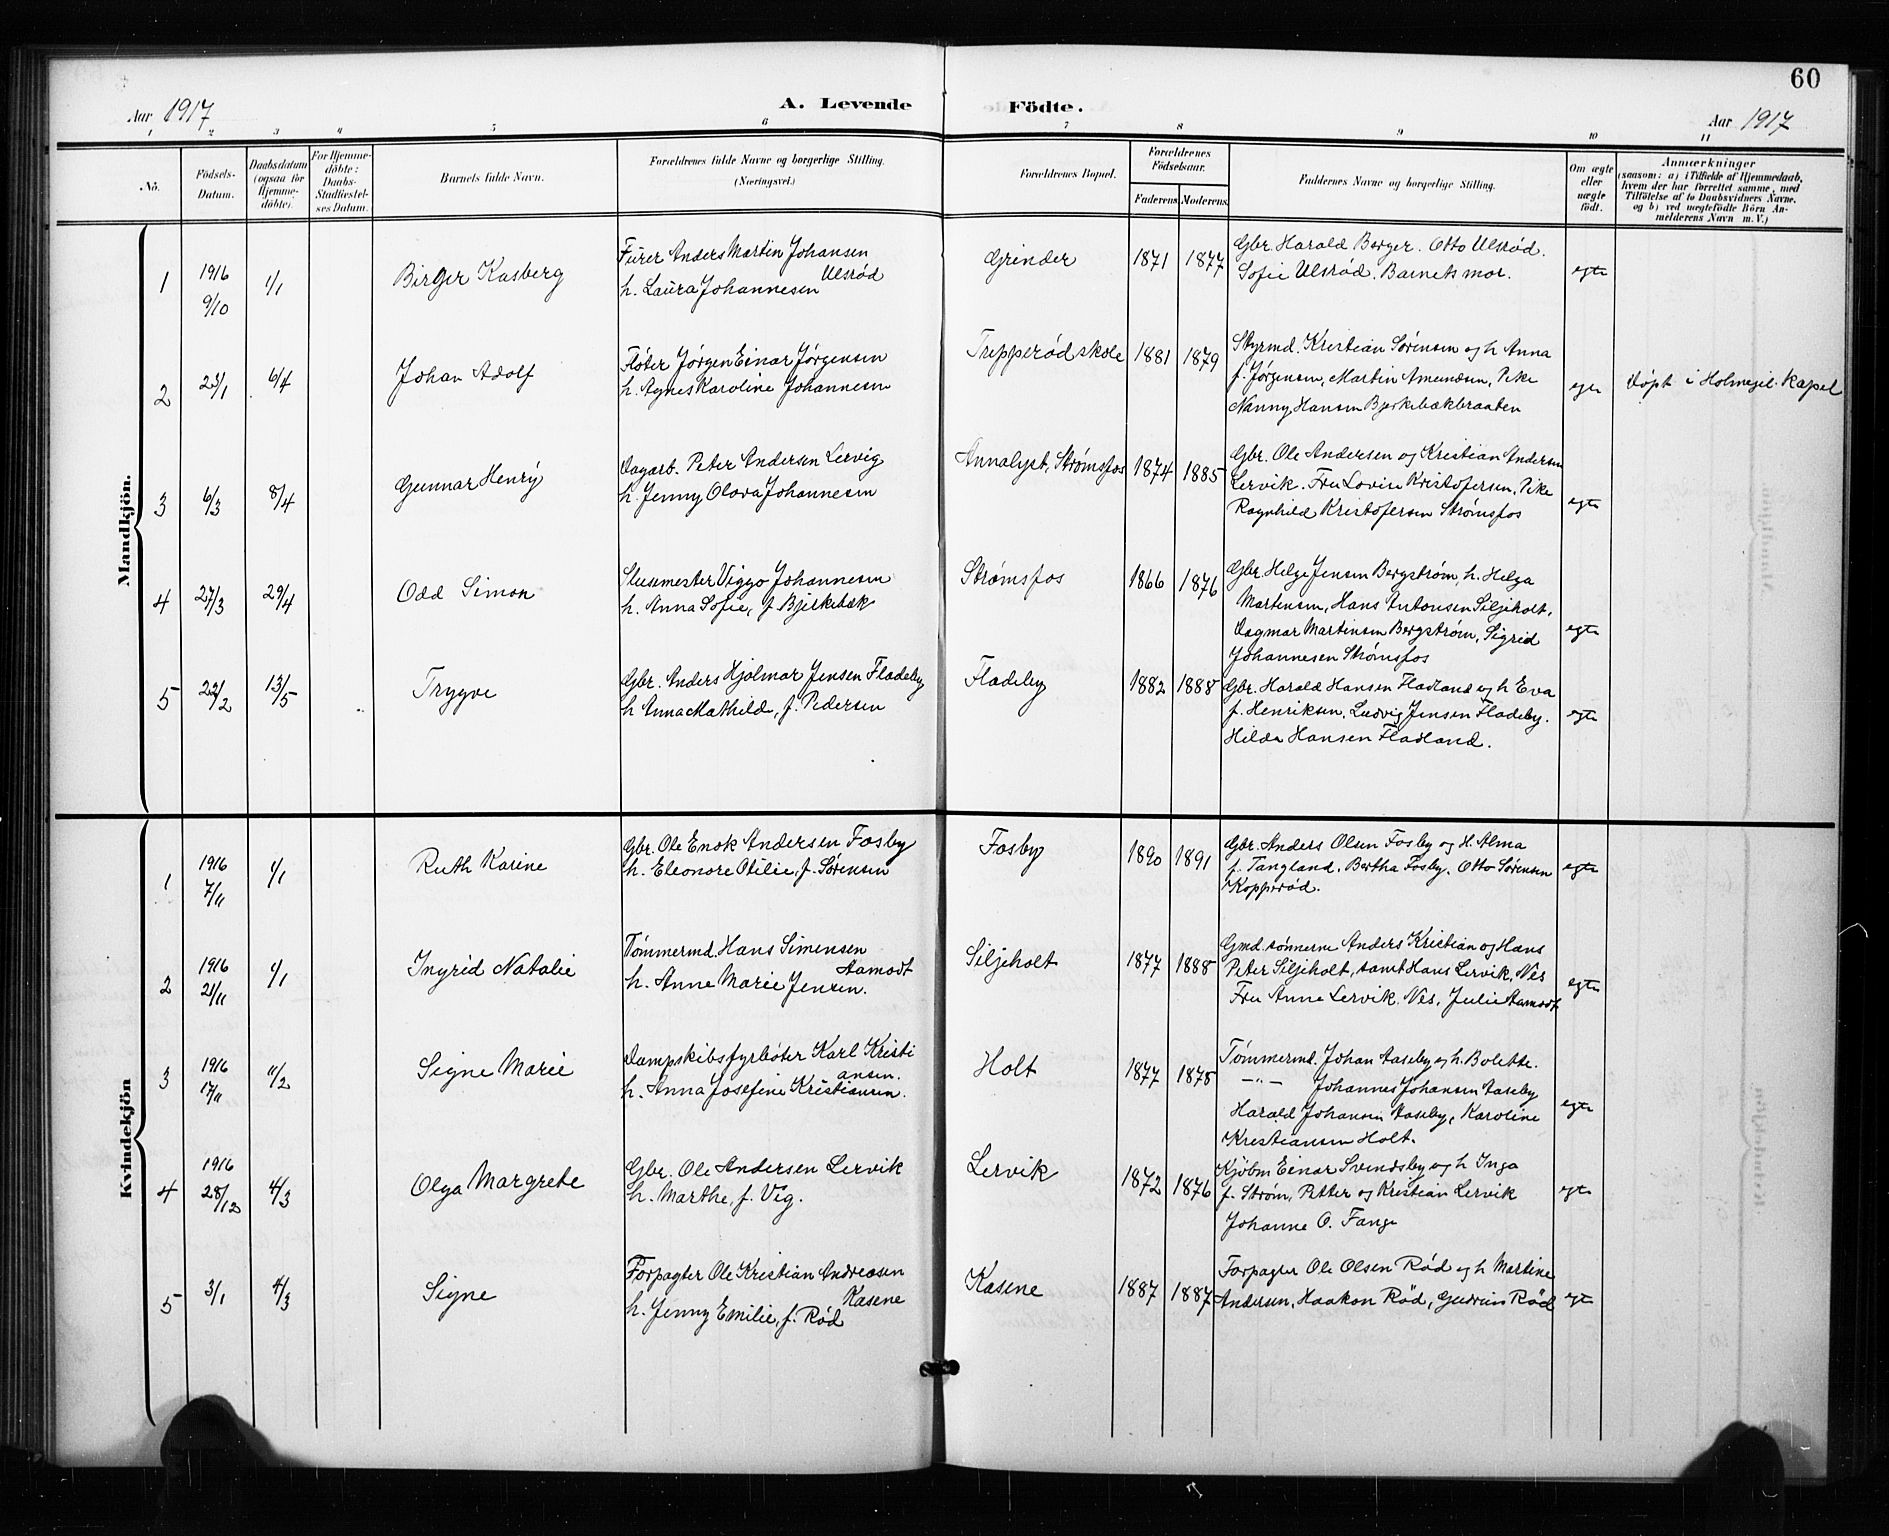 60
Aar 1917 A. Levende Födte. Aar 1917
1 2 3 4 5 6 7 8 9 10 11
No.
Födsels-
Datum.
Daabsdatum
(ogsaa for
Hjemme-
döbte).
For Hjemme-
döbte:
Daabs-
Stadfæstel-
ses Datum.
Barnets fulde Navn.
Forældrenes fulde Navne og borgerlige Stilling.
(Næringsvei.)
Forældrenes Bopæl.
Forældrenes
Födselsaar.
Faderens. Moderens.
Faddernes Navne og borgerlige Stilling.
Om ægte
eller
uægte
født.
Anmærkninger
(saasom: a) i Tilfælde af Hjemmedaab,
hvem der har forrettet samme, med
Tilföielse af to Daabsvidners Navne.
og b) ved uægtefödte Börn An-
melderens Navn m. V.)
Mandkjön.
1 1916 9/10 1/1 Birger Kasberg
Furer Anders Martin Johansen
Ulsrød
h. Laura Johannesen
Grinder 1871 1877
Gbr. Harald Berger. Otto Ulsrød.
Sofie Ulsrød. Barnets mor.
egte
2 23/1 6/4 Johan Adolf
Fløter Jørgen Einar Jørgensen
h. Agnes Karoline Johannesen
Tripperød skole 1881 1879
Styrmd. Kristian Sørensen og h. Anna
f. Jørgensen, Martin Amundsen, Pike
Nanny Hansen Bjerkebækbraaten
egte
Døpt i Holmegil kapel
3 6/3 8/4 Gunnar Henry
Dagarb. Peter Andersen Lervig
h. Jenny Olava Johannesen
Annalyst, Strømsfos 1874 1885
Gbr. Ole Andersen og Kristian Andersen
Lervik. Fru Lovise Kristofersen, Pike
Ragnhild Kristofersen Strømsfos
egte
4 27/3 29/4 Odd Simon
Slusemester Viggo Johannesen
h. Anna Sofie, f. Bjerkebæk
Strømsfos 1866 1876
Gbr. Helge Jensen Bergstrøm, h. Helga
Martinsen, Hans Antonsen Siljeholt,
Dagmar Martinsen Bergstrøm, Sigrid
Johannesen Strømsfos
egte
5 22/2 13/5 Trygve
Gbr. Anders Hjalmar Jensen Fladeby
h. Anna Mathilde, f. Pedersen
Fladeby 1882 1888
Gbr. Harald Hansen Fladland og h. Eva
f. Henriksen, Ludvig Jensen Fladeby.
Hilda Hansen Fladland.
egte
Kvindekjön
1 1916 7/11 1/1 Ruth Karine
Gbr. Ole Enok Andersen Fosby
h. Eleonore Otilie, f. Sørensen
Fosby 1890 1891
Gbr. Anders Olsen Fosby og H. Alma
f. Tangland. Bertha Fosby. Otto Sørensen
Kopperød.
egte
2 1916 21/11 1/1 Ingrid Natalie
Tømmermd. Hans Simensen
Aamodt
h. Anne Marie Jensen.
Siljeholt 1877 1888
Gmd. sønnerne Anders Kristian og Hans
Peter Siljeholt, samt Hans Lervik, Nes
Fru Anne Lervik. Nes, Julie Aamodt
egte
3 1916 17/11 11/2 Signe Marie
Dampskibsfyrbøter Karl Kristi
ansen.
h. Anna Josefine Kristiansen.
Holt 1877 1878
Tømmermd. Johan Aaseby og h. Bolette.
—"— Johannes Johansen Aaseby
Harald Johansen Aaseby, Karoline
Kristiansen Holt.
egte
4 1916 28/12 4/3 Olga Margrete
Gbr. Ole Andersen Lervik
h. Marthe, f. Vig.
Lervik 1872 1876
Kjøbm Einar Svendsby og h. Inga
f. Strøm, Petter og Kristian Lervik
Johanne O. Fange
egte
5 3/1 4/3 Signe
Forpagter Ole Kristian Andreasen
Kasene
h. Jenny Emilie, f. Rød
Kasene 1887 1887
Forpagter Ole Olsen Rød og h. Martine
Andersen, Haakon Rød, Gudrun Rød
egte